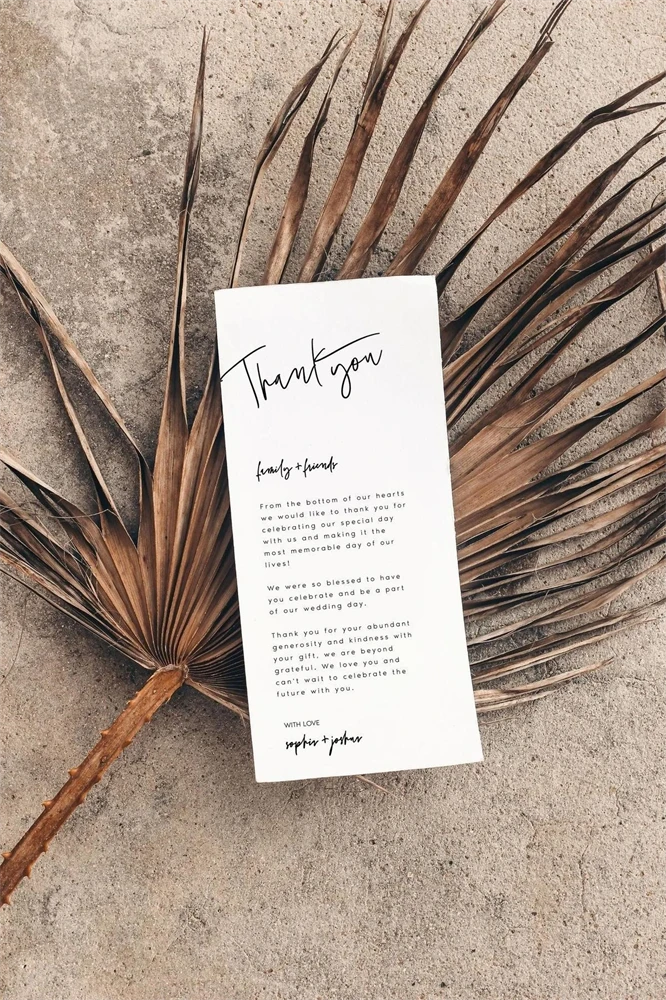 Thank you
family + friends
From the bottom of our hearts
we would like to thank you for
celebrating our special day
with us and making it the
most memorable day of our
lives!
We were so blessed to have
you celebrate and be a part
of our wedding day.
Thank you for your abundant
generosity and kindness with
your gift, we are beyond
grateful. We love you and
can't wait to celebrate the
future with you.
WITH LOVE
sophie + joshua